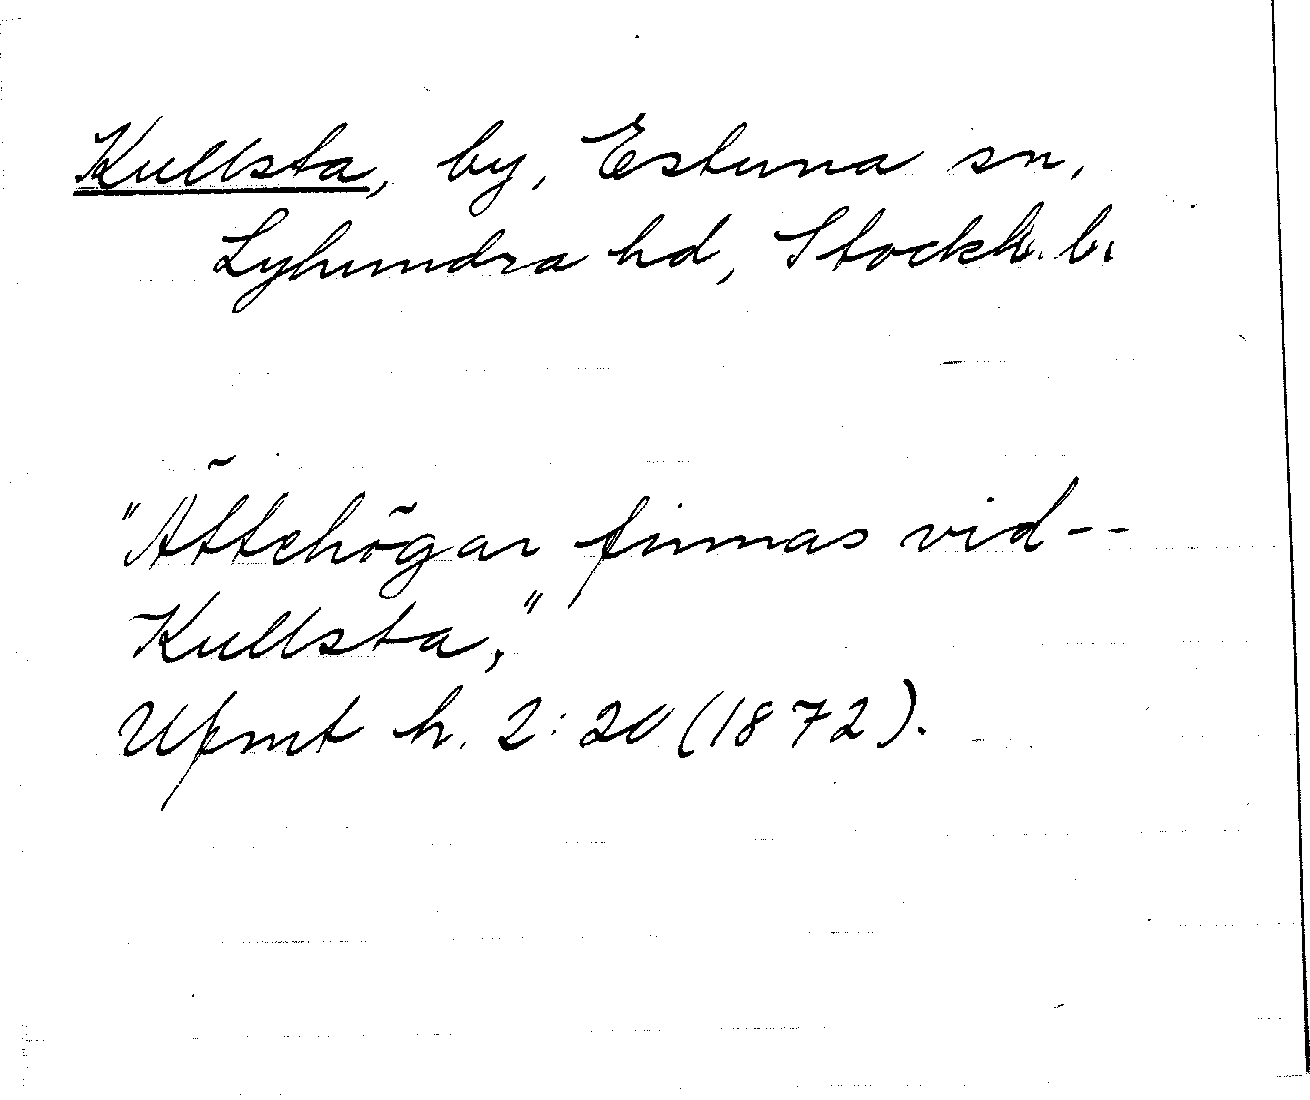 Kullsta, by, Estuna sn,
Lyhundra hd, Stockh. l.
"Ättehögar finnas vid--
Kullsta,"
Upmt h. 2:20 (1872).